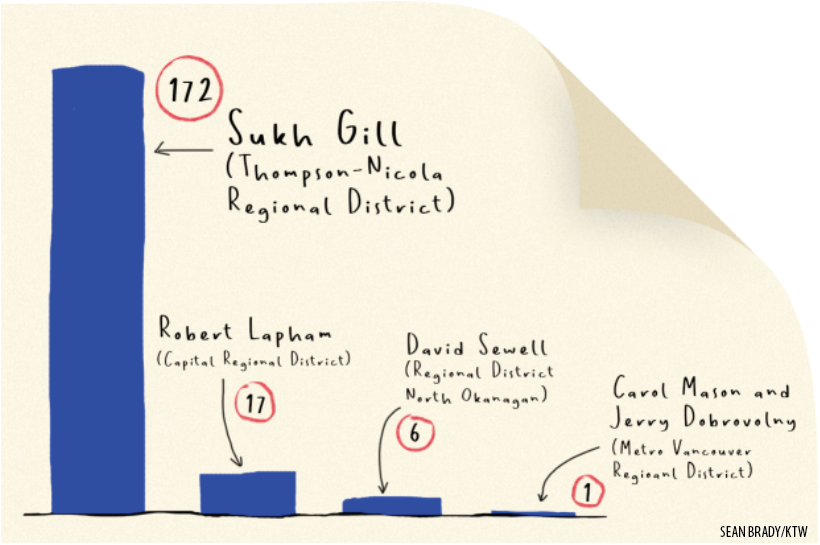 172
Sukh Gill
(Thompson-Nicola
Regional District)
Robert Lapham
(Capital Regional District)
17
David Sewell
(Regional District
North Okanagan)
6
Carol Mason and
Jerry Dobrovolny
(Metro Vancouver
Regioanl District)
1
SEAN BRADY/KTW